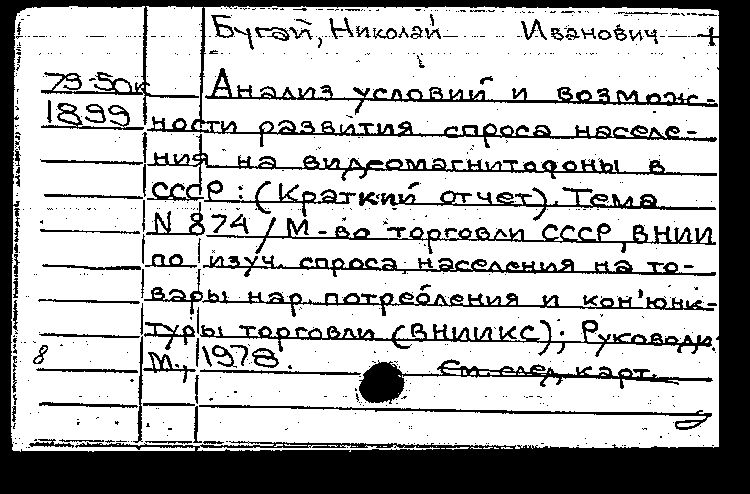 Бугай, Николай Иванович
79-50к Анализ условий и возмож-
1899 ности развития спроса населе-
ния на видеомагнитофоны в
СССР: (Краткий отчет). Тема
N 874 / М-во торговли СССР, ВНИИ
по изуч. спроса населения на то-
вары нар. потребления и кон'юнк-
туры торговли (ВНИИКС); Руководи.
8 М., 1978.
См. след. карт.